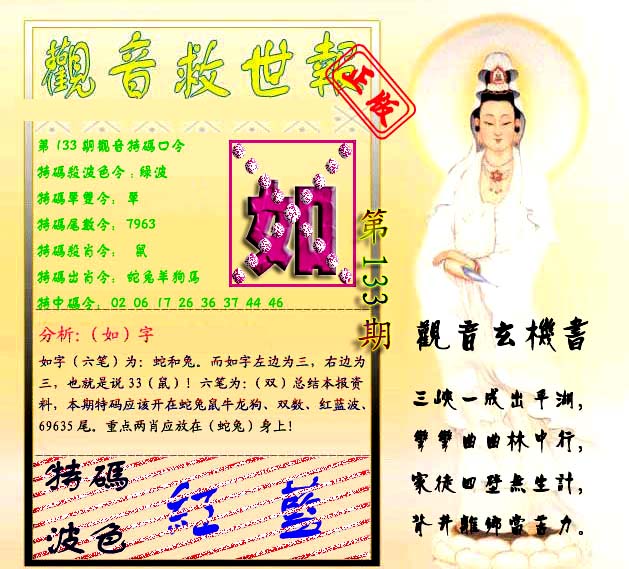 觀音救世報
正版
第133期觀音特碼口令
特碼殺波色令：綠波
特碼單雙令： 單
特碼尾數令： 7963
特碼殺肖令： 鼠
特碼出肖令： 蛇兔羊狗馬
特中碼令： 02 06 17 26 36 37 44 46
如
第133期
分析:（如）字
如字（六笔）为：蛇和兔。而如字左边为三，右边为
三，也就是说 33（鼠）！六笔为:（双）总结本报资
料，本期特码应该开在蛇兔鼠牛龙狗、双数、红蓝波、
69635 尾。重点两肖应放在（蛇兔）身上！
特碼
波色
紅 藍
觀音玄機書
三峽一成出平湖，
彎彎曲曲林中行，
家徒四壁無生計，
背井離鄉當苦力。